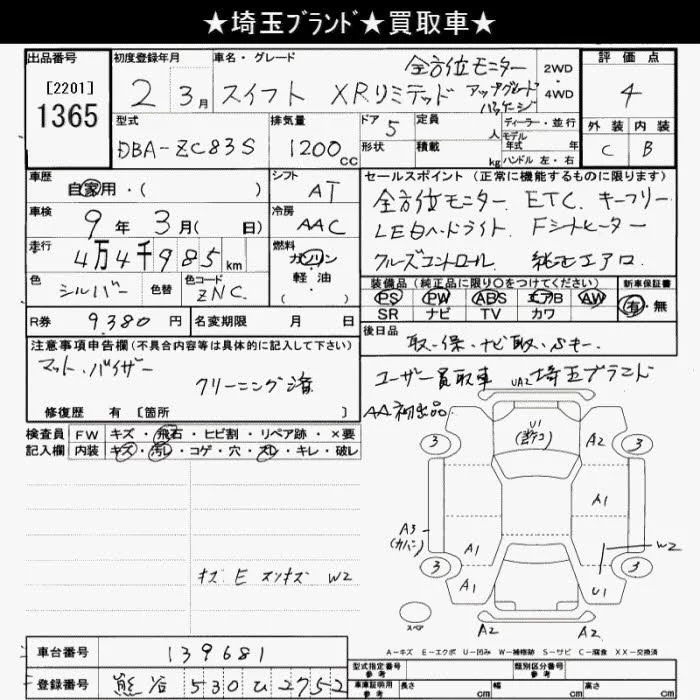 ★埼玉ﾌﾞﾗﾝﾄﾞ★買取車★
出品番号
[2201]
1365
初度登録年月
2 3月
車名・グレード
全方位モニター
スイフト XRリミテッド アップグレードパッケージ
2WD
・
4WD
評価点
4
外装 内装
C B
型式
DBA-ZC83S
排気量
1200cc
ドア 5
形状
定員
人
積載
kg
ディーラー・並行
モデル
年式 年
ハンドル 左・右
車歴
自家用・( )
シフト
AT
車検
9年3月( 日)
冷房
AAC
走行
4万4千985km
燃料
ガソリン
・
軽油
・
( )
色
シルバー
色替
色コード
ZNC
R券
9.380円
名変期限 月 日
セールスポイント(正常に機能するものに限ります)
全方位モニター、ETC、キーフリー
LEDヘッドライト、Fシートヒーター
クルーズコントロール、純正エアロ
装備品(純正品に限り○をつけてください)
PS PW ABS エアB AW
SR ナビ TV カワ
新車保証書
有・無
後日品
取・保・ナビ取・Sキー
注意事項申告欄(不具合内容等は具体的に記入して下さい)
マット・バイザー
クリーニング済
修復歴 有 [箇所 ]
ユーザー買取車 埼玉ブランド
AA初出品
検査員
記入欄
FW キズ・飛石・ヒビ割・リペア跡・×要
内装 キズ・汚レ・コゲ・穴・スレ・キレ・破レ
キズ E スリキズ W2
UA2
U1
3
A2
3
A1
A3
(カバン)
A1
W2
3
A1
U1
3
スペア
A2
A2
A-キズ E-エクボ U-凹み W-補修跡 S-サビ C-腐食 XX-交換済
車台番号
139681
登録番号
熊谷 530 ひ 2752
型式指定番号
参考
類別区分番号
参考
車庫証明用
参考
長さ cm
幅 cm
高さ cm